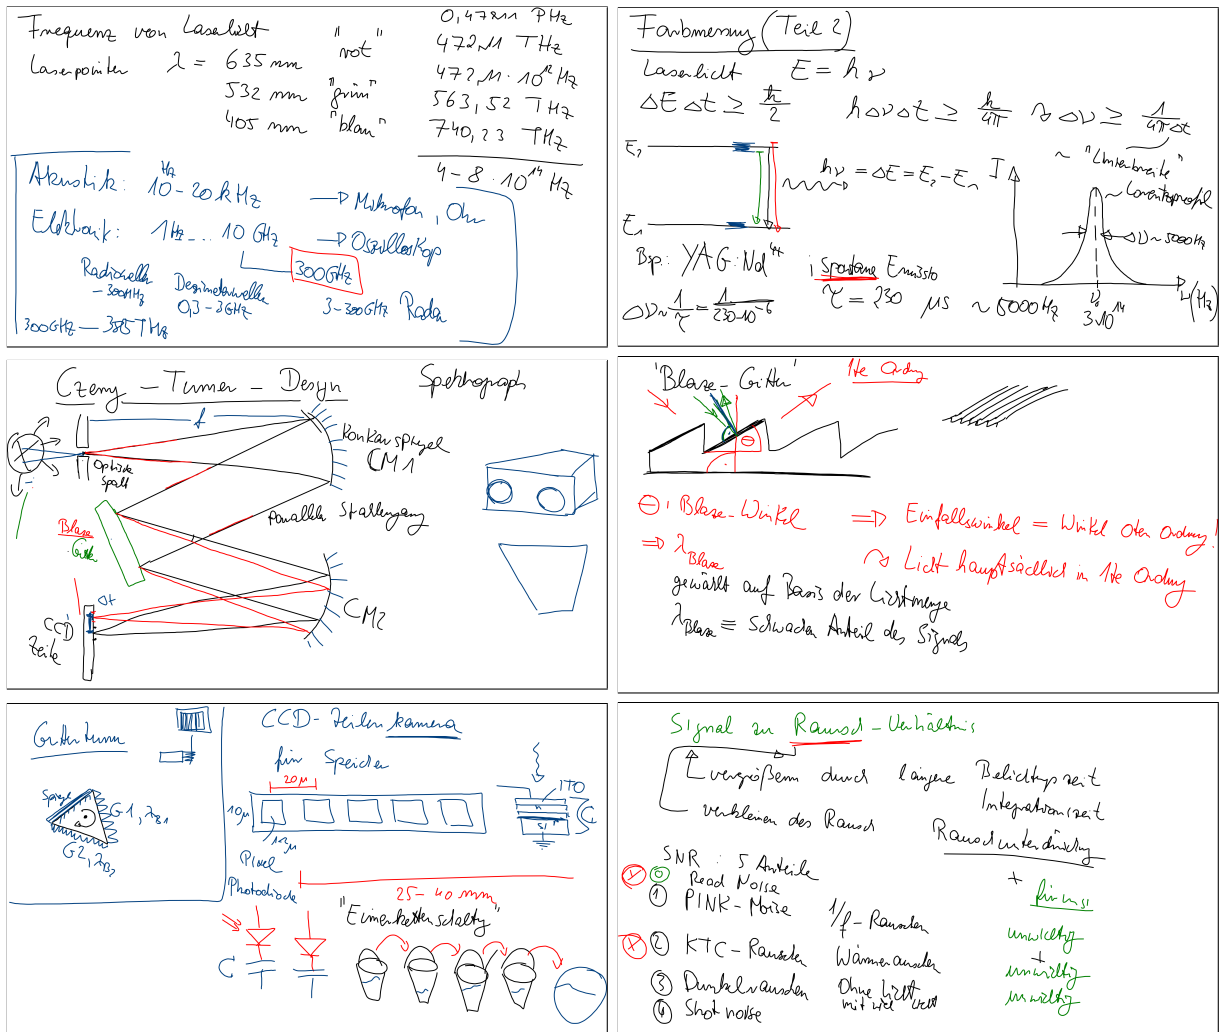 Frequenz von Laserlicht
Laserpointer λ = 635 nm "rot"
532 nm "grün"
405 nm "blau"
0,47211 PHz
472,11 THz
472,11 · 10¹² Hz
563,52 THz
740,23 THz
4 – 8 · 10¹⁴ Hz
Akustik: 10 Hz – 20 kHz → Mikrofon, Ohr
Elektronik: 1 Hz ... 10 GHz → Oszilloskop
300 GHz
Radiowellen
– 300 MHz
Dezimeterwellen
0,3 – 3 GHz
3 – 300 GHz Radar
300 GHz — 385 THz
Farbmessung (Teil 2)
Laserlicht E = hν
ΔE Δt ≥ ħ/2 hΔνΔt ≥ h/4π ↷ Δν ≥ 1/4πΔt
~ "Linienbreite"
E₂
hν = ΔE = E₂ – E₁
I
~ Lorentzprofil
Δν ~ 5000 Hz
E₁
Bsp.: YAG:Nd ; spontane Emission
τ = 230 μs ~ 5000 Hz
Δν ~ 1/τ = 1/230·10⁻⁶
ν₀
3·10¹⁴
ν (Hz)
Czerny – Turner – Design Spektrograph
f
Konkavspiegel
CM1
Optischer
Spalt
Paralleler Strahlengang
Blaze
Gitter
CM2
CCD
Zeile
'Blaze – Gitter' 1te Ordng
Θ
Θ: Blaze – Winkel ⇒ Einfallswinkel = Winkel 0ter Ordnung!
⇒ λ Blaze ↷ Licht hauptsächlich in 1te Ordng
gewählt auf Basis der Lichtmenge
λ Blaze ≡ schwachen Anteil des Signals
Gitterturm
Spiegel
G1, λB1
G2, λB2
CCD – Zeilenkamera
für Speicher
20 μ
10 μ
ITO
Si
Pixel
Photodiode
25 – 40 mm
"Eimerkettenschaltg"
C
Signal zu Rausch – Verhältnis
vergrößern durch längere Belichtungszeit
Integrationszeit
verkleinern des Rausch
Rauschunterdrückung
SNR : 5 Anteile
0 Read Noise
1 PINK – Noise 1/f – Rauschen
für uns
unwichtig
2 KTC – Rauschen Wärmerauschen
unwichtig
3 Dunkelrauschen Ohne Licht
unwichtig
4 Shot noise mit viel Licht